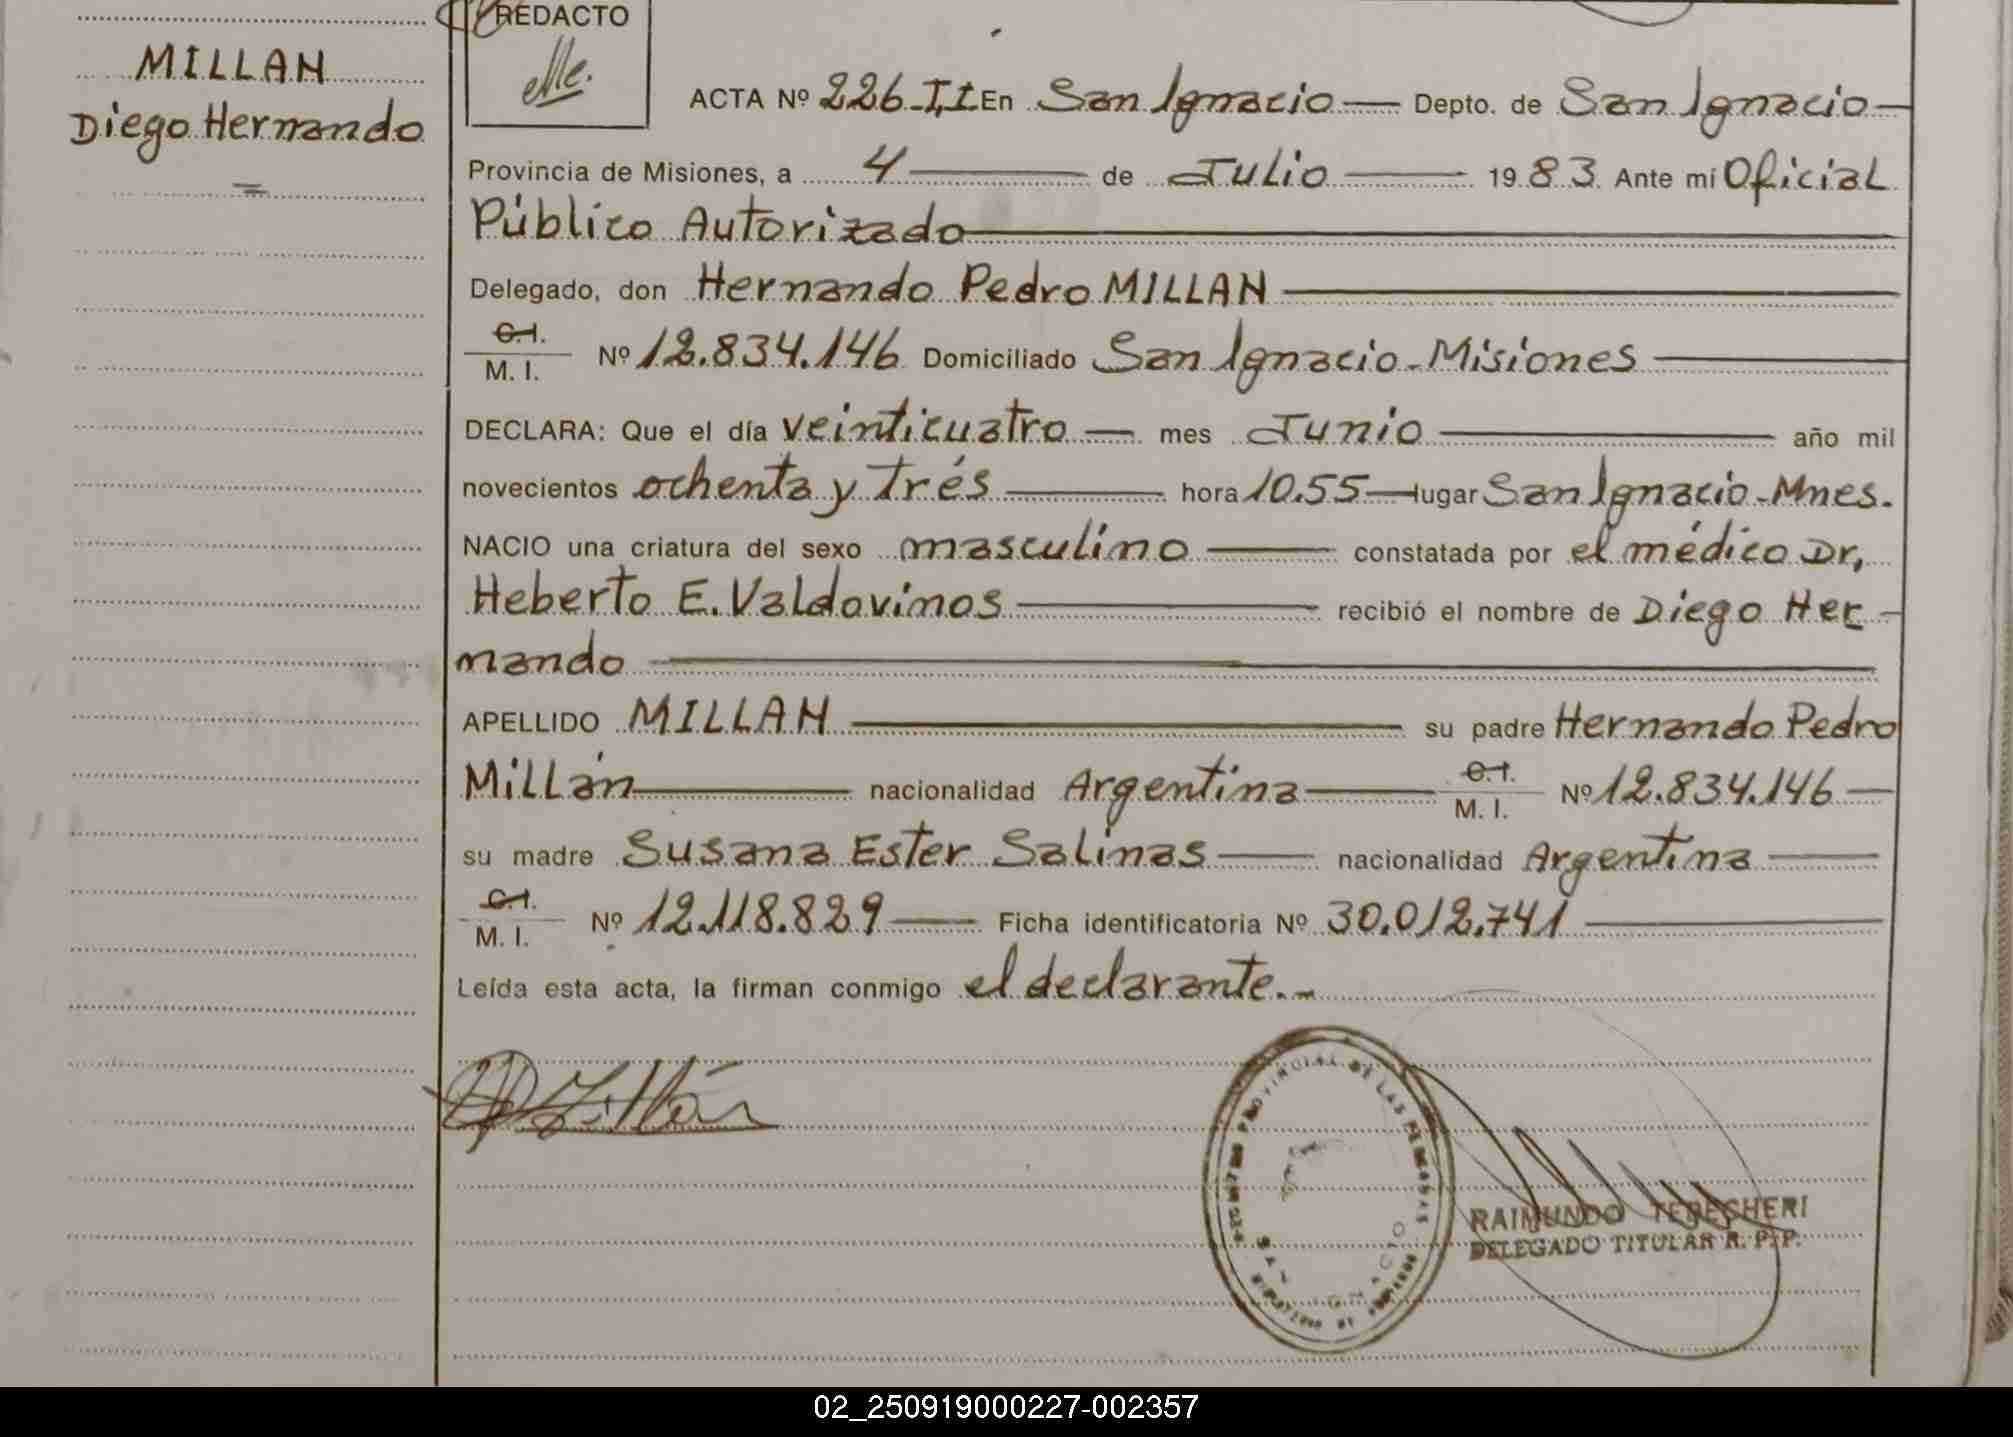 REDACTO
MILLAN
Diego Hernando
ACTA Nº 226-II En San Ignacio Depto. de San Ignacio
Provincia de Misiones, a 4 de Julio 1983 Ante mí Oficial
Público Autorizado
Delegado, don Hernando Pedro MILLAN
C.I.
M. I. Nº 12.834.146 Domiciliado San Ignacio-Misiones
DECLARA: Que el día veinticuatro mes Junio año mil
novecientos ochenta y trés hora 10.55 lugar San Ignacio-Mnes.
NACIO una criatura del sexo masculino constatada por el médico Dr,
Heberto E. Valdovinos recibió el nombre de Diego Her-
nando
APELLIDO MILLAN su padre Hernando Pedro
Millán nacionalidad Argentina C.I. M. I. Nº 12.834.146
su madre Susana Ester Salinas nacionalidad Argentina
C.I.
M. I. Nº 12.118.829 Ficha identificatoria Nº 30.012.741
Leída esta acta, la firman conmigo el declarante.-
PROVINCIAL DE LAS PERSONAS
RAIMUNDO TERECHERI
DELEGADO TITULAR R. P. P.
02_250919000227-002357